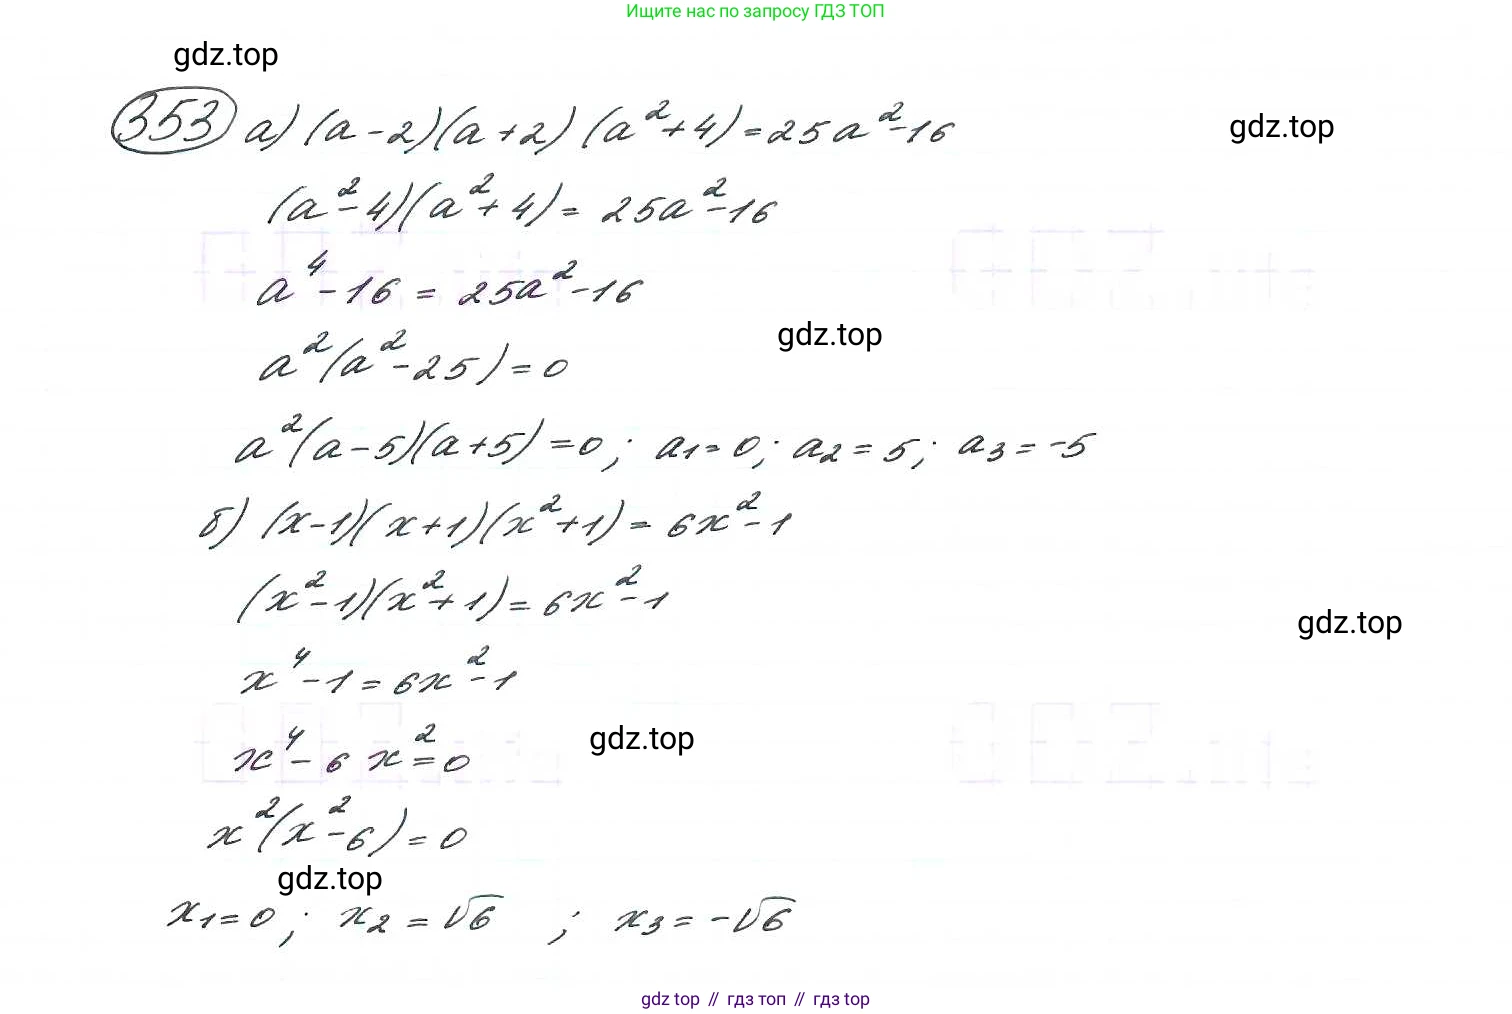 Ищите нас по запросу ГДЗ ТОП
gdz.top
353 а) (a-2)(a+2)(a²+4)=25a²-16
gdz.top
(a²-4)(a²+4)=25a²-16
a⁴-16=25a²-16
gdz.top
a²(a²-25)=0
a²(a-5)(a+5)=0; a₁=0; a₂=5; a₃=-5
б) (x-1)(x+1)(x²+1)=6x²-1
(x²-1)(x²+1)=6x²-1
gdz.top
x⁴-1=6x²-1
gdz.top
x⁴-6x²=0
x²(x²-6)=0
gdz.top
x₁=0; x₂=√6; x₃=-√6
gdz top // гдз топ // гдз top